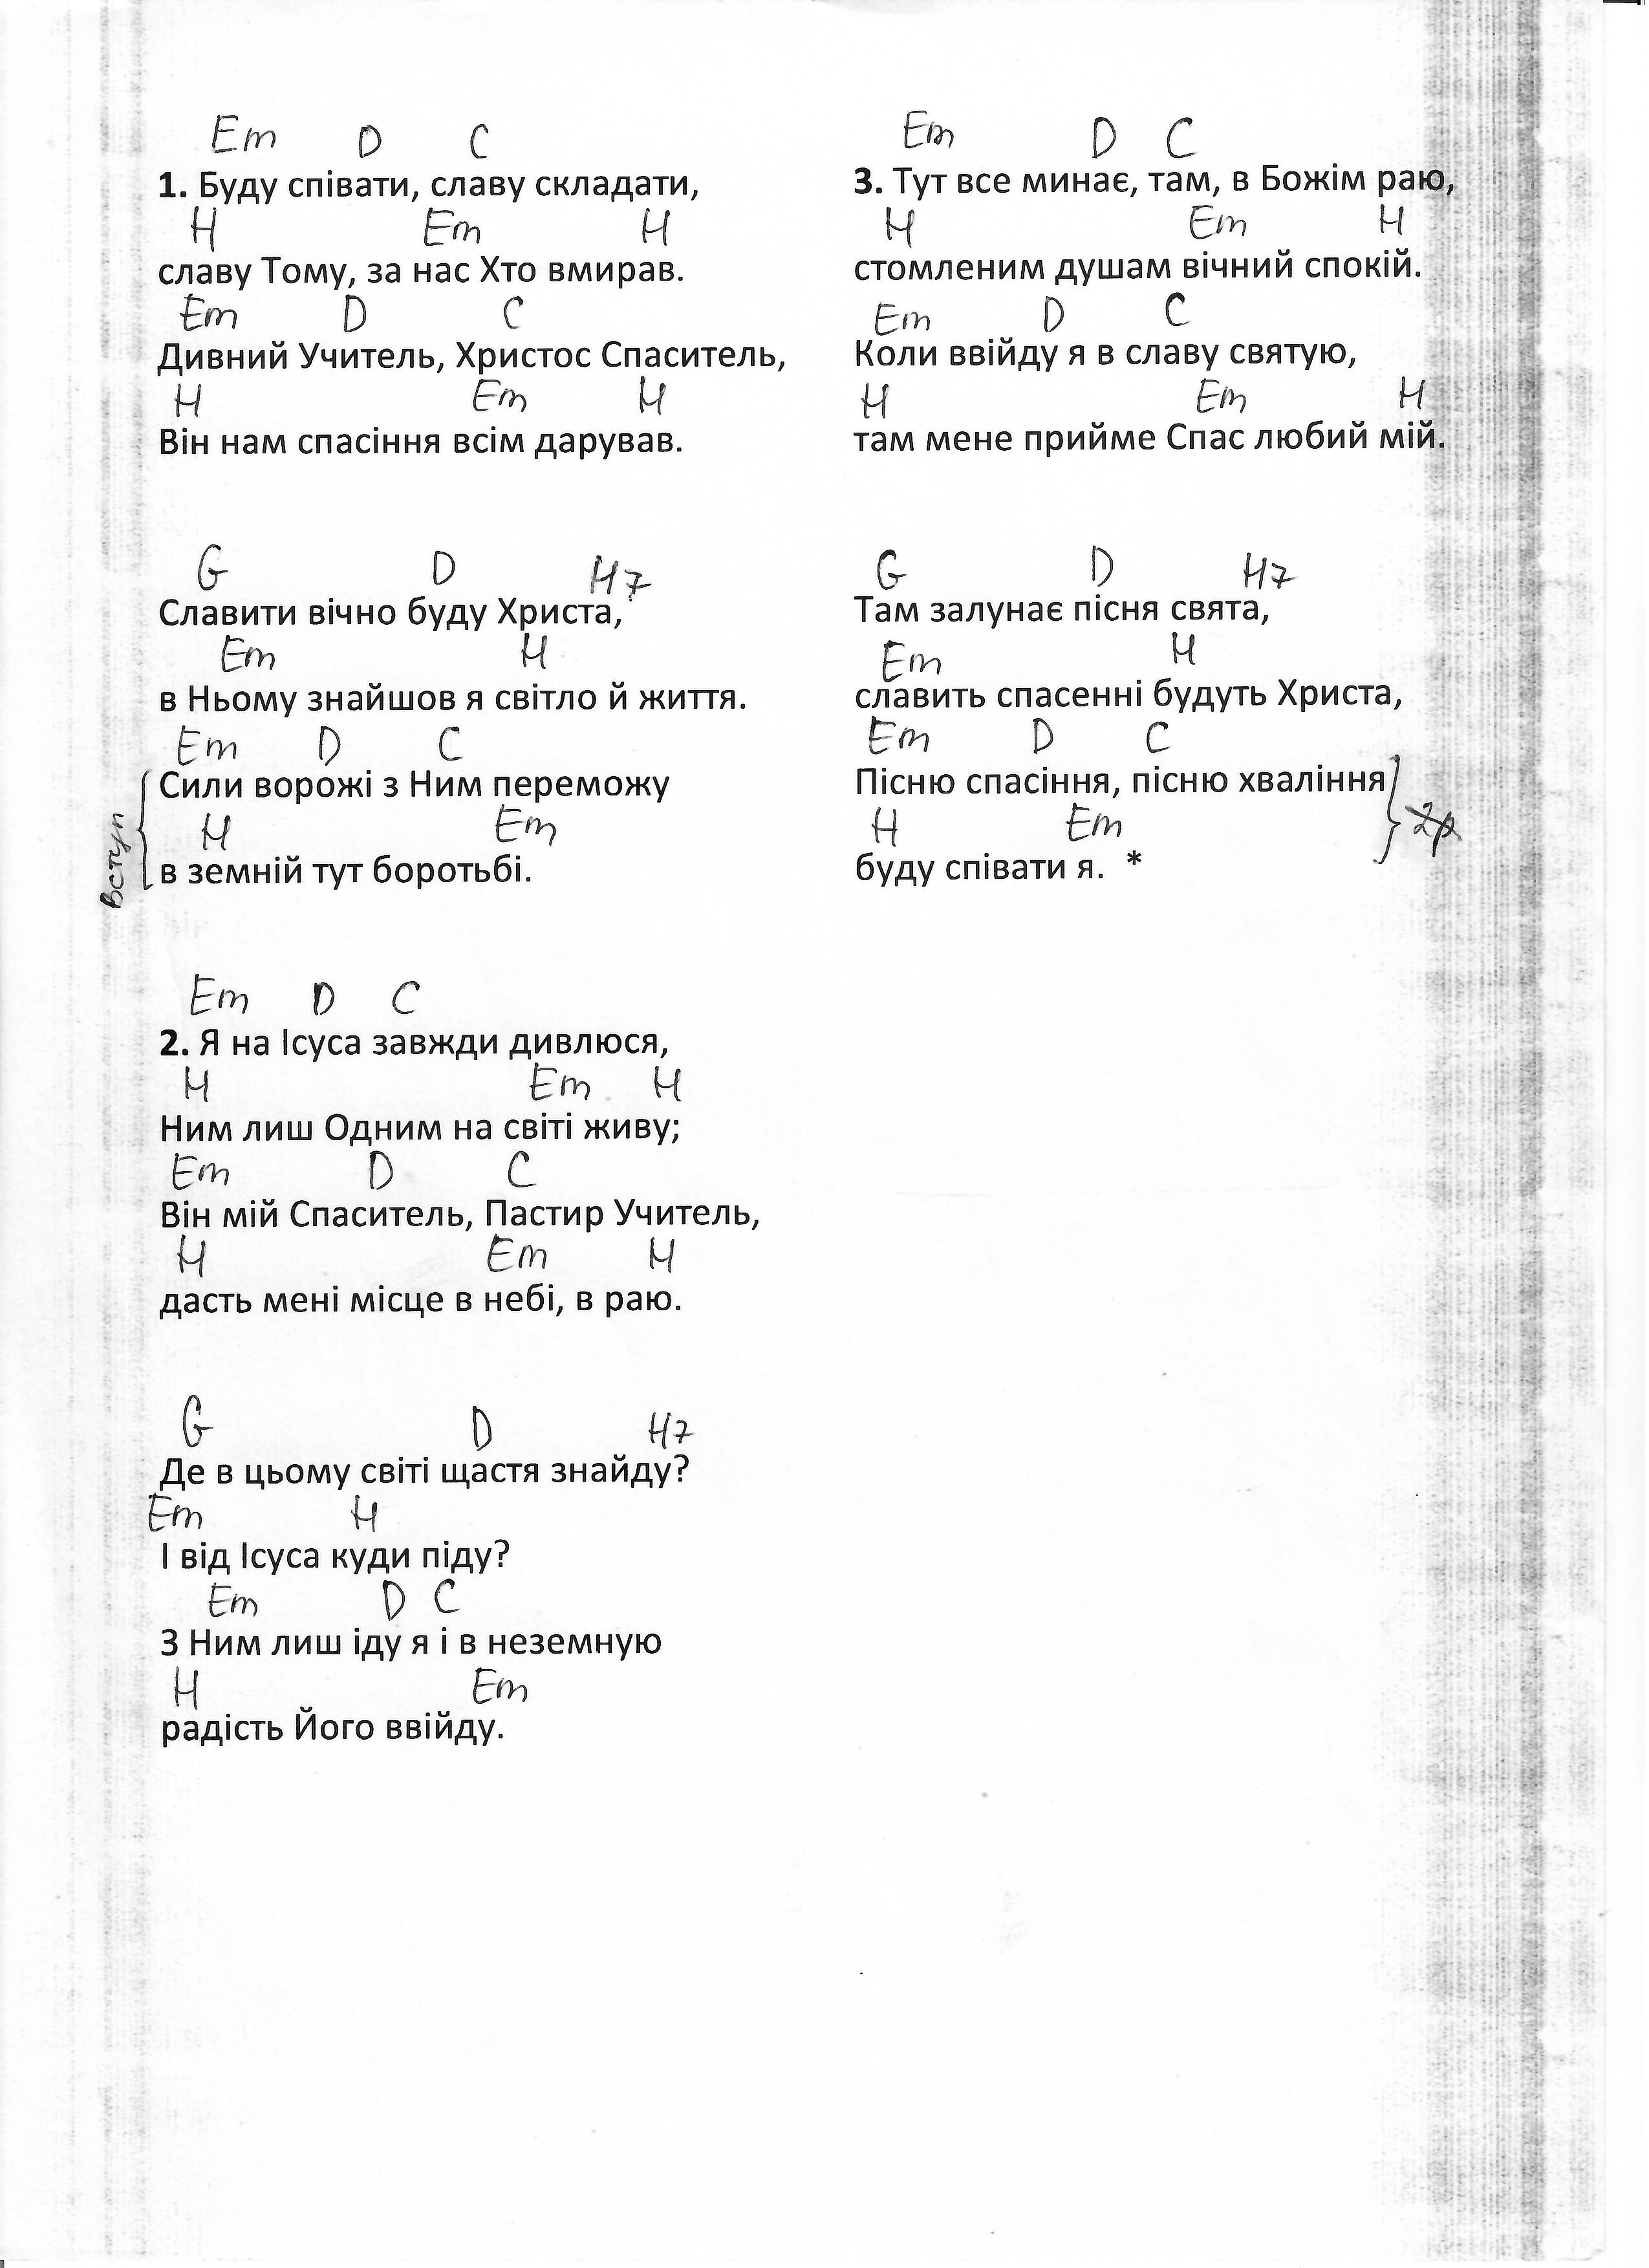 Em D C
1. Буду співати, славу складати,
H Em H
славу Тому, за нас Хто вмирав.
Em D C
Дивний Учитель, Христос Спаситель,
H Em H
Він нам спасіння всім дарував.
G D H7
Славити вічно буду Христа,
Em H
в Ньому знайшов я світло й життя.
Em D C
Сили ворожі з Ним переможу
H Em
в земній тут боротьбі.
вступ
Em D C
2. Я на Ісуса завжди дивлюся,
H Em H
Ним лиш Одним на світі живу;
Em D C
Він мій Спаситель, Пастир Учитель,
H Em H
дасть мені місце в небі, в раю.
G D H7
Де в цьому світі щастя знайду?
Em H
І від Ісуса куди піду?
Em D C
З Ним лиш іду я і в неземную
H Em
радість Його ввійду.
Em D C
3. Тут все минає, там, в Божім раю,
H Em H
стомленим душам вічний спокій.
Em D C
Коли ввійду я в славу святую,
H Em H
там мене прийме Спас любий мій.
G D H7
Там залунає пісня свята,
Em H
славить спасенні будуть Христа,
Em D C
Пісню спасіння, пісню хваління
H Em
буду співати я. *
2р